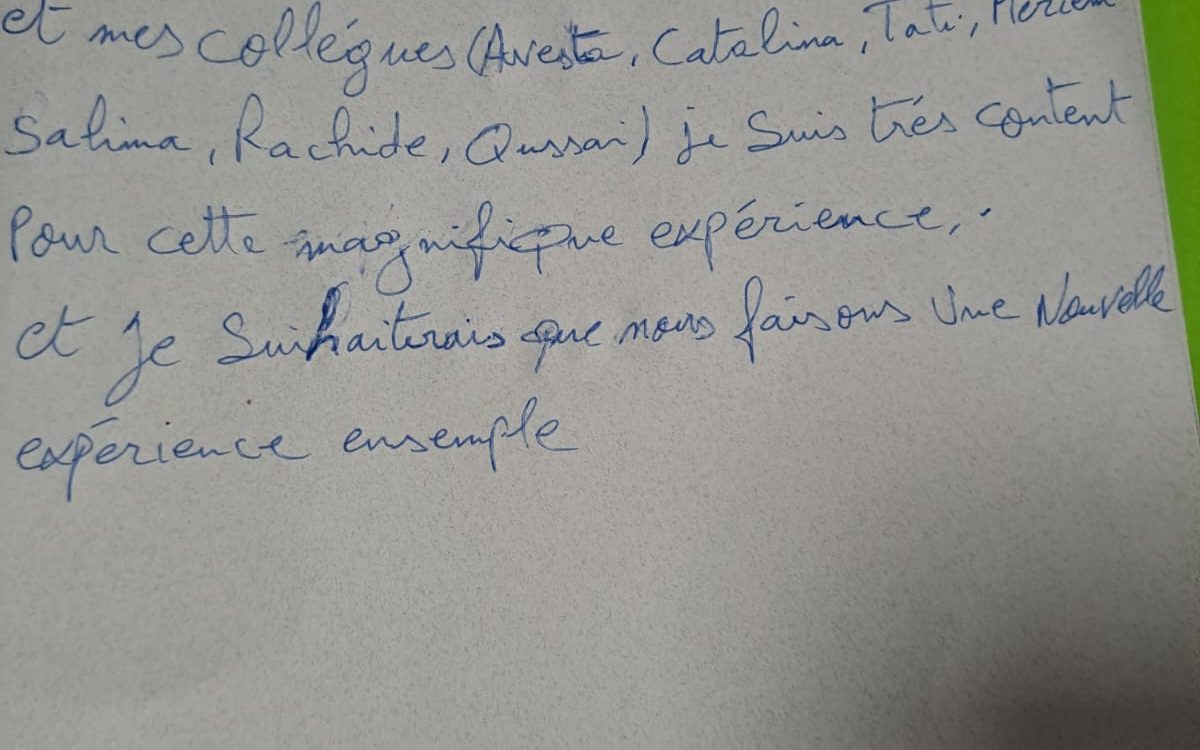 et mes collégues (Avesta, Catalina, Tati, Meriem
Salima, Rachide, Qussai) je suis trés content
Pour cette magnifique expérience,.
et Je Suihaiterais que nous faisons Une Nouvelle
expérience ensemple